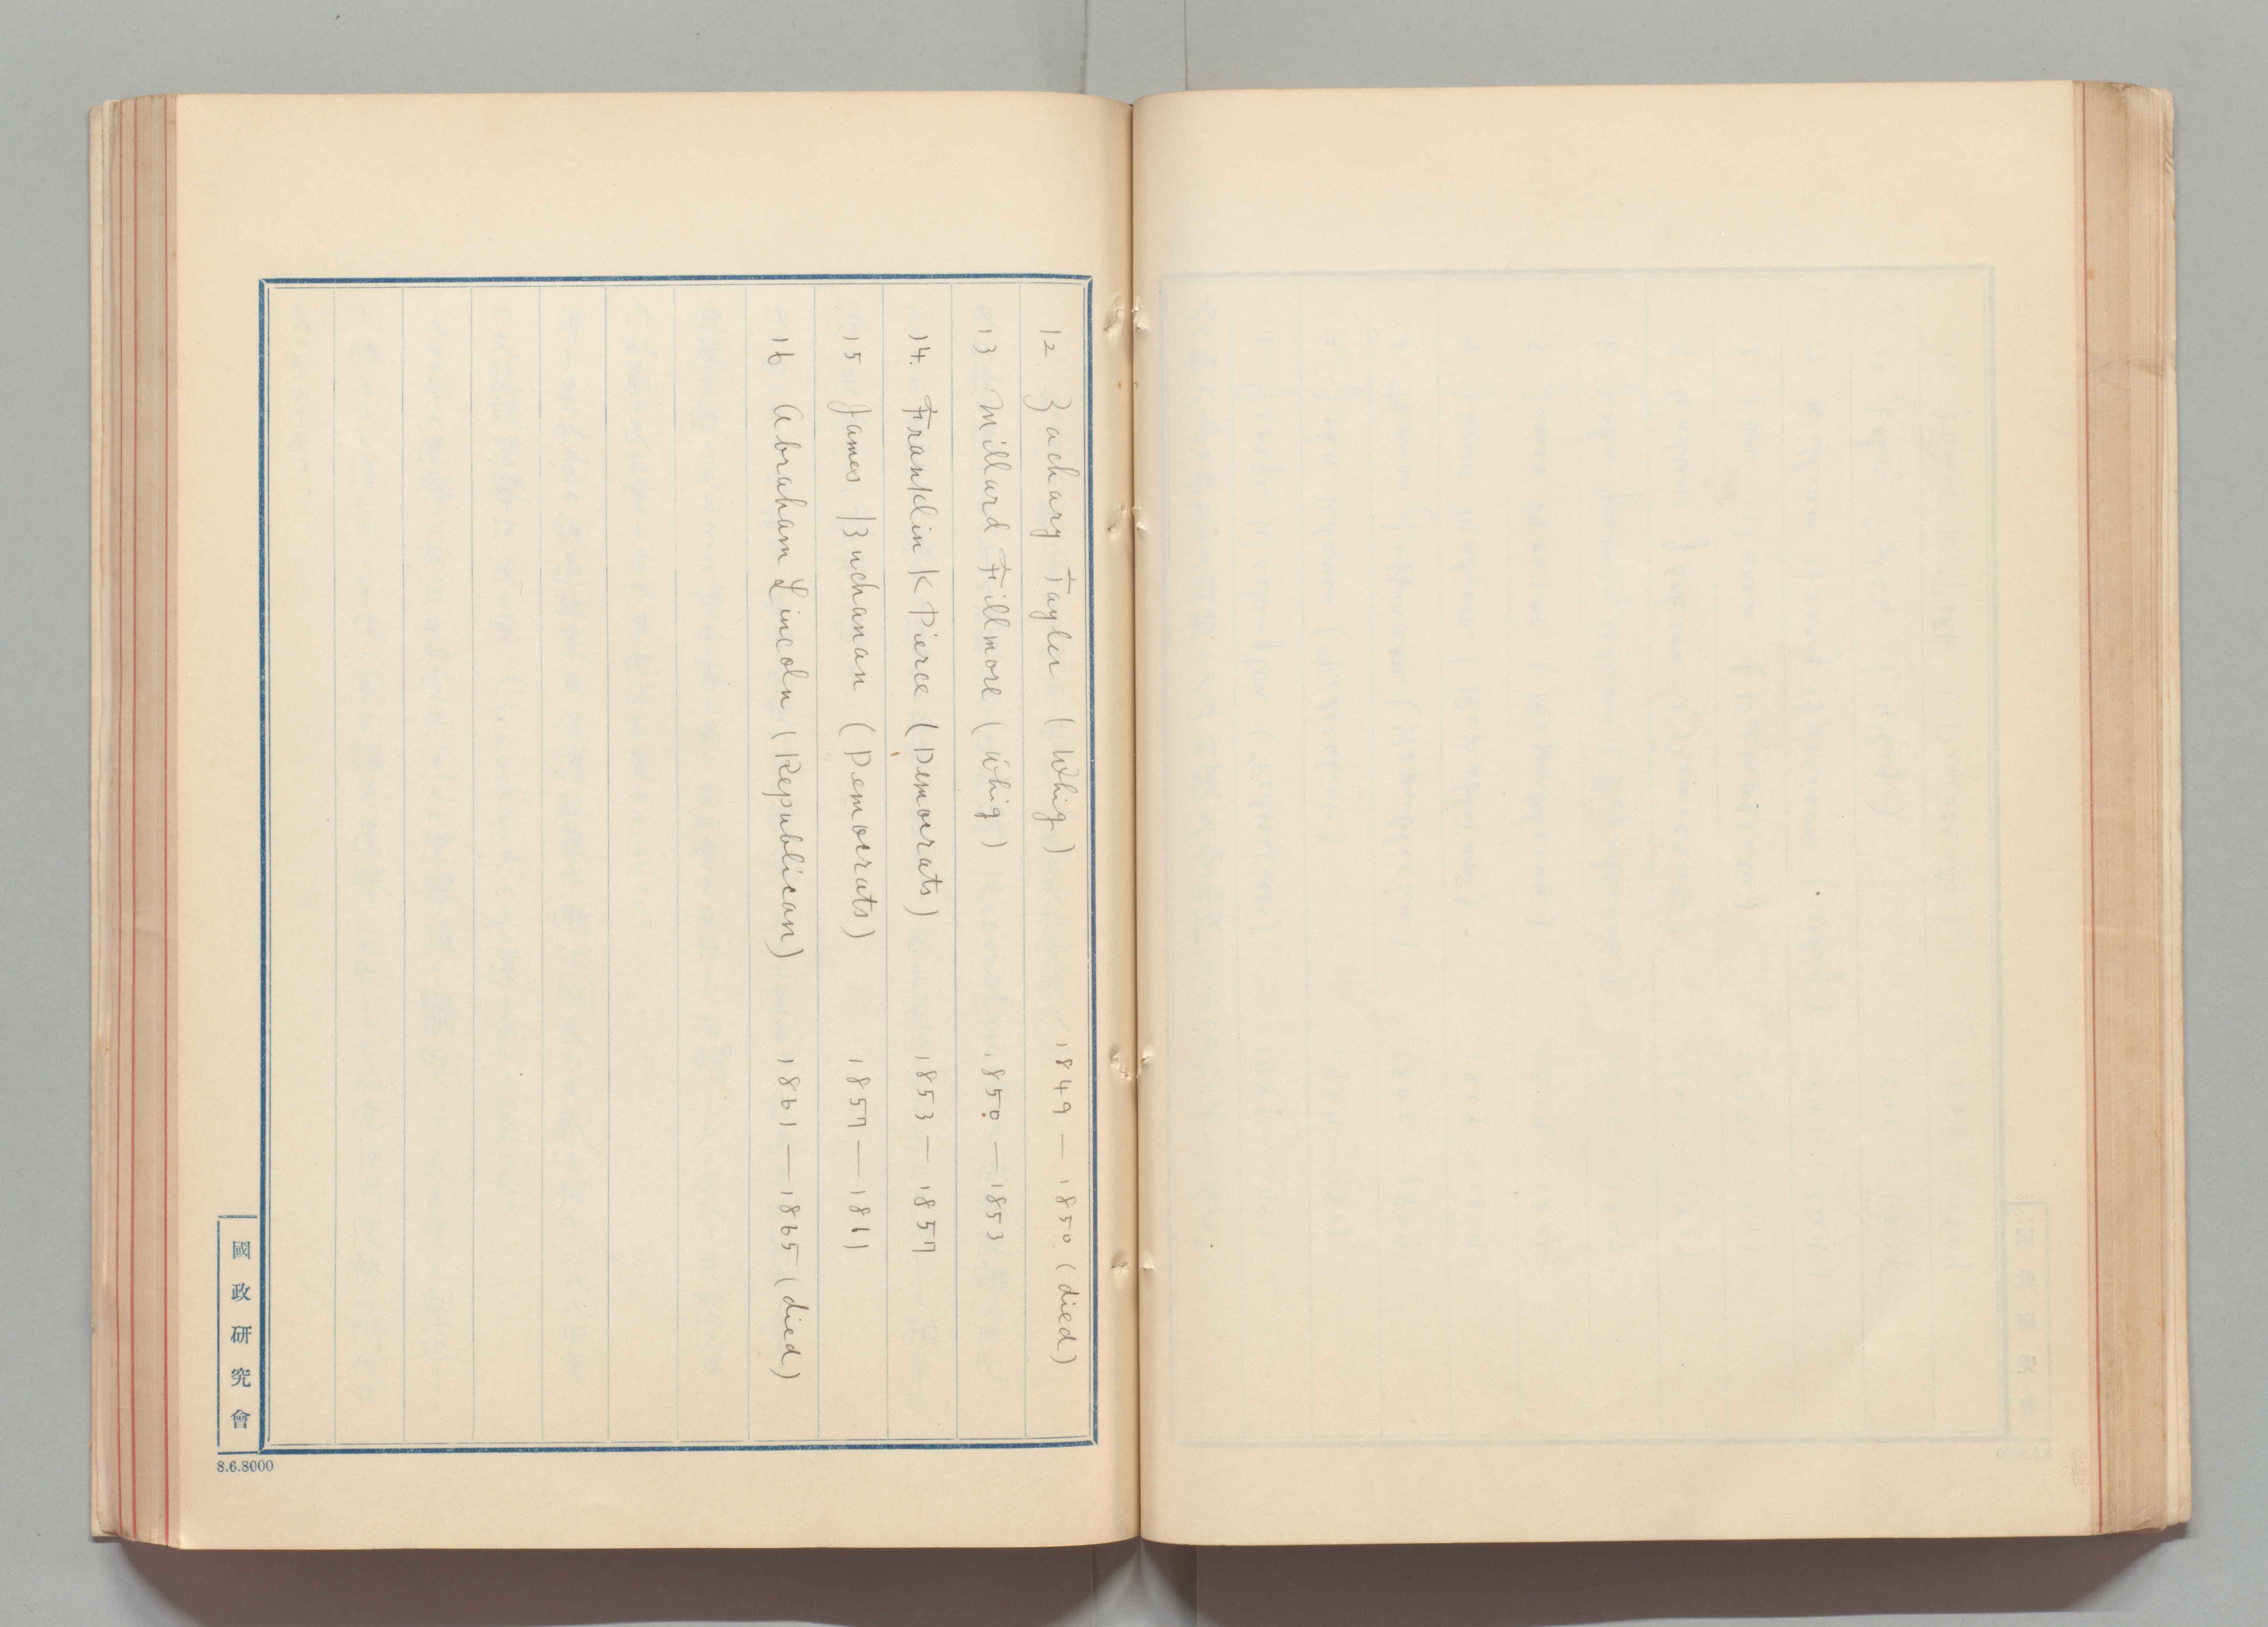 12 Zachary Tayler (Whig) 1849 — 1850 (died)
13 Millard Fillmore (Whig) 1850 — 1853
14. Franklin K Pierce (Democrats) 1853 — 1857
15 James Buchanan (Democrats) 1857 — 1861
16 Abraham Lincoln (Republican) 1861 — 1865 (died)
國政研究會
8.6.8000